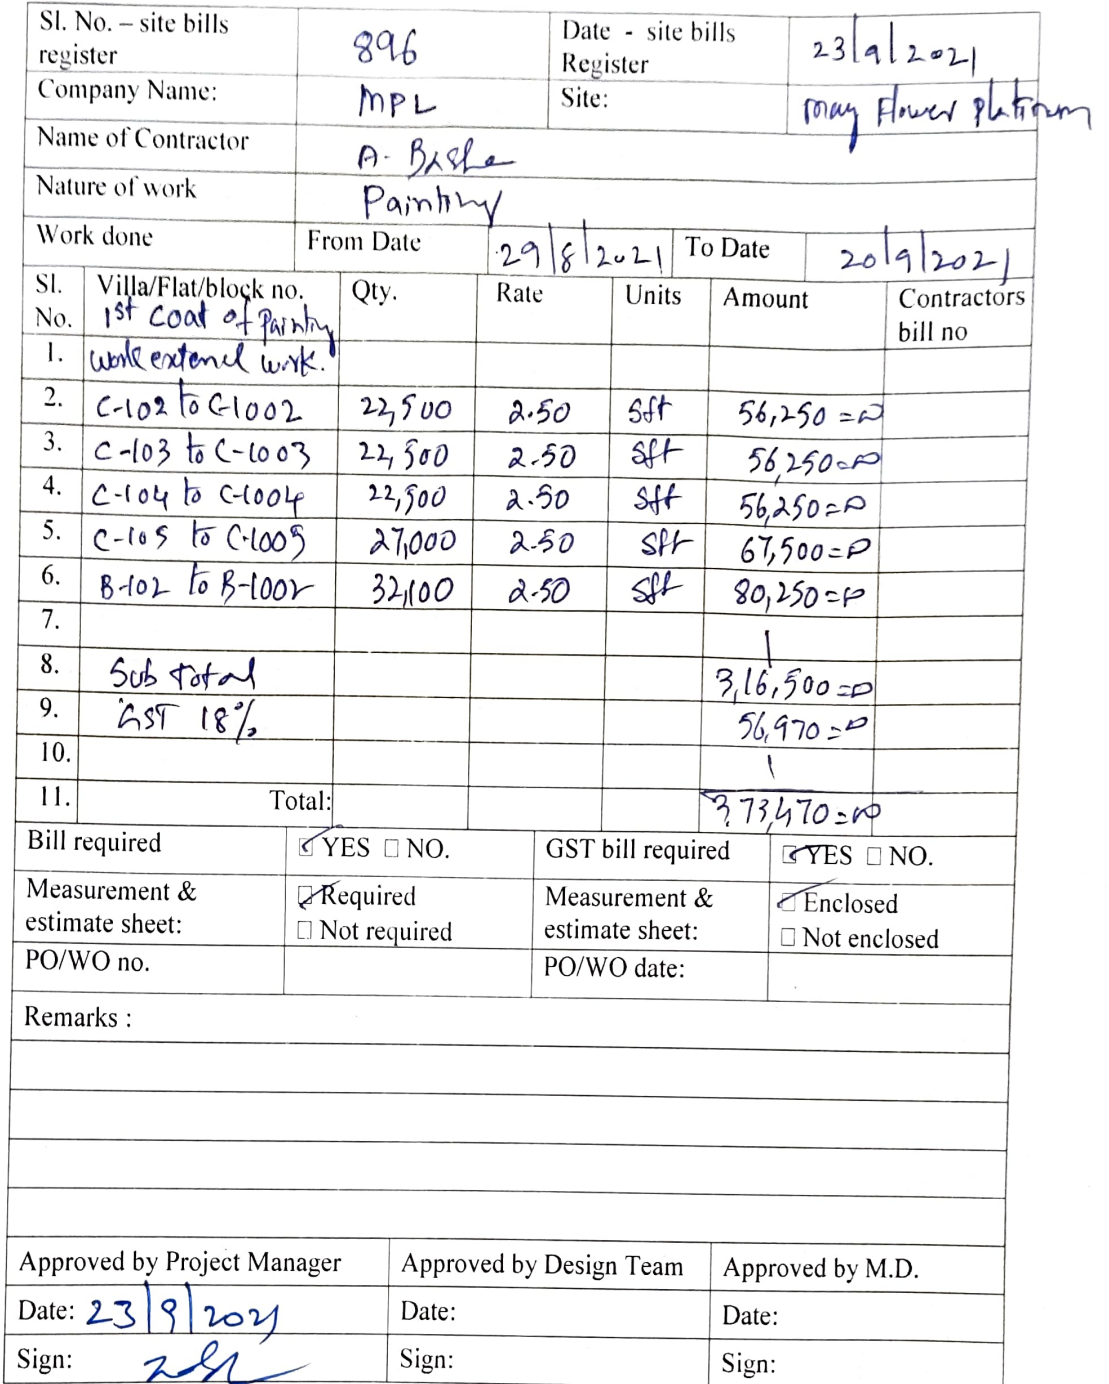 Sl. No. – site bills register 896 Date - site bills Register 23/9/2021
Company Name: MPL Site: May Flower Platinum
Name of Contractor A. Basha
Nature of work Painting
Work done From Date 29/8/2021 To Date 20/9/2021
Sl. No. Villa/Flat/block no. Qty. Rate Units Amount Contractors bill no
1st coat of Painting
1. work extenel work.
2. C-102 to C-1002 22,500 2.50 Sft 56,250=00
3. C-103 to C-1003 22,500 2.50 Sft 56,250=00
4. C-104 to C-1004 22,500 2.50 Sft 56,250=00
5. C-105 to C-1005 27,000 2.50 Sft 67,500=00
6. B-102 to B-1002 32,100 2.50 Sft 80,250=00
7.
8. Sub total 3,16,500=00
9. GST 18% 56,970=00
10.
11. Total: 3,73,470=00
Bill required YES NO. GST bill required YES NO.
Measurement & estimate sheet: Required Not required Measurement & estimate sheet: Enclosed Not enclosed
PO/WO no. PO/WO date:
Remarks :
Approved by Project Manager Approved by Design Team Approved by M.D.
Date: 23/9/2021 Date: Date:
Sign: Sign: Sign: